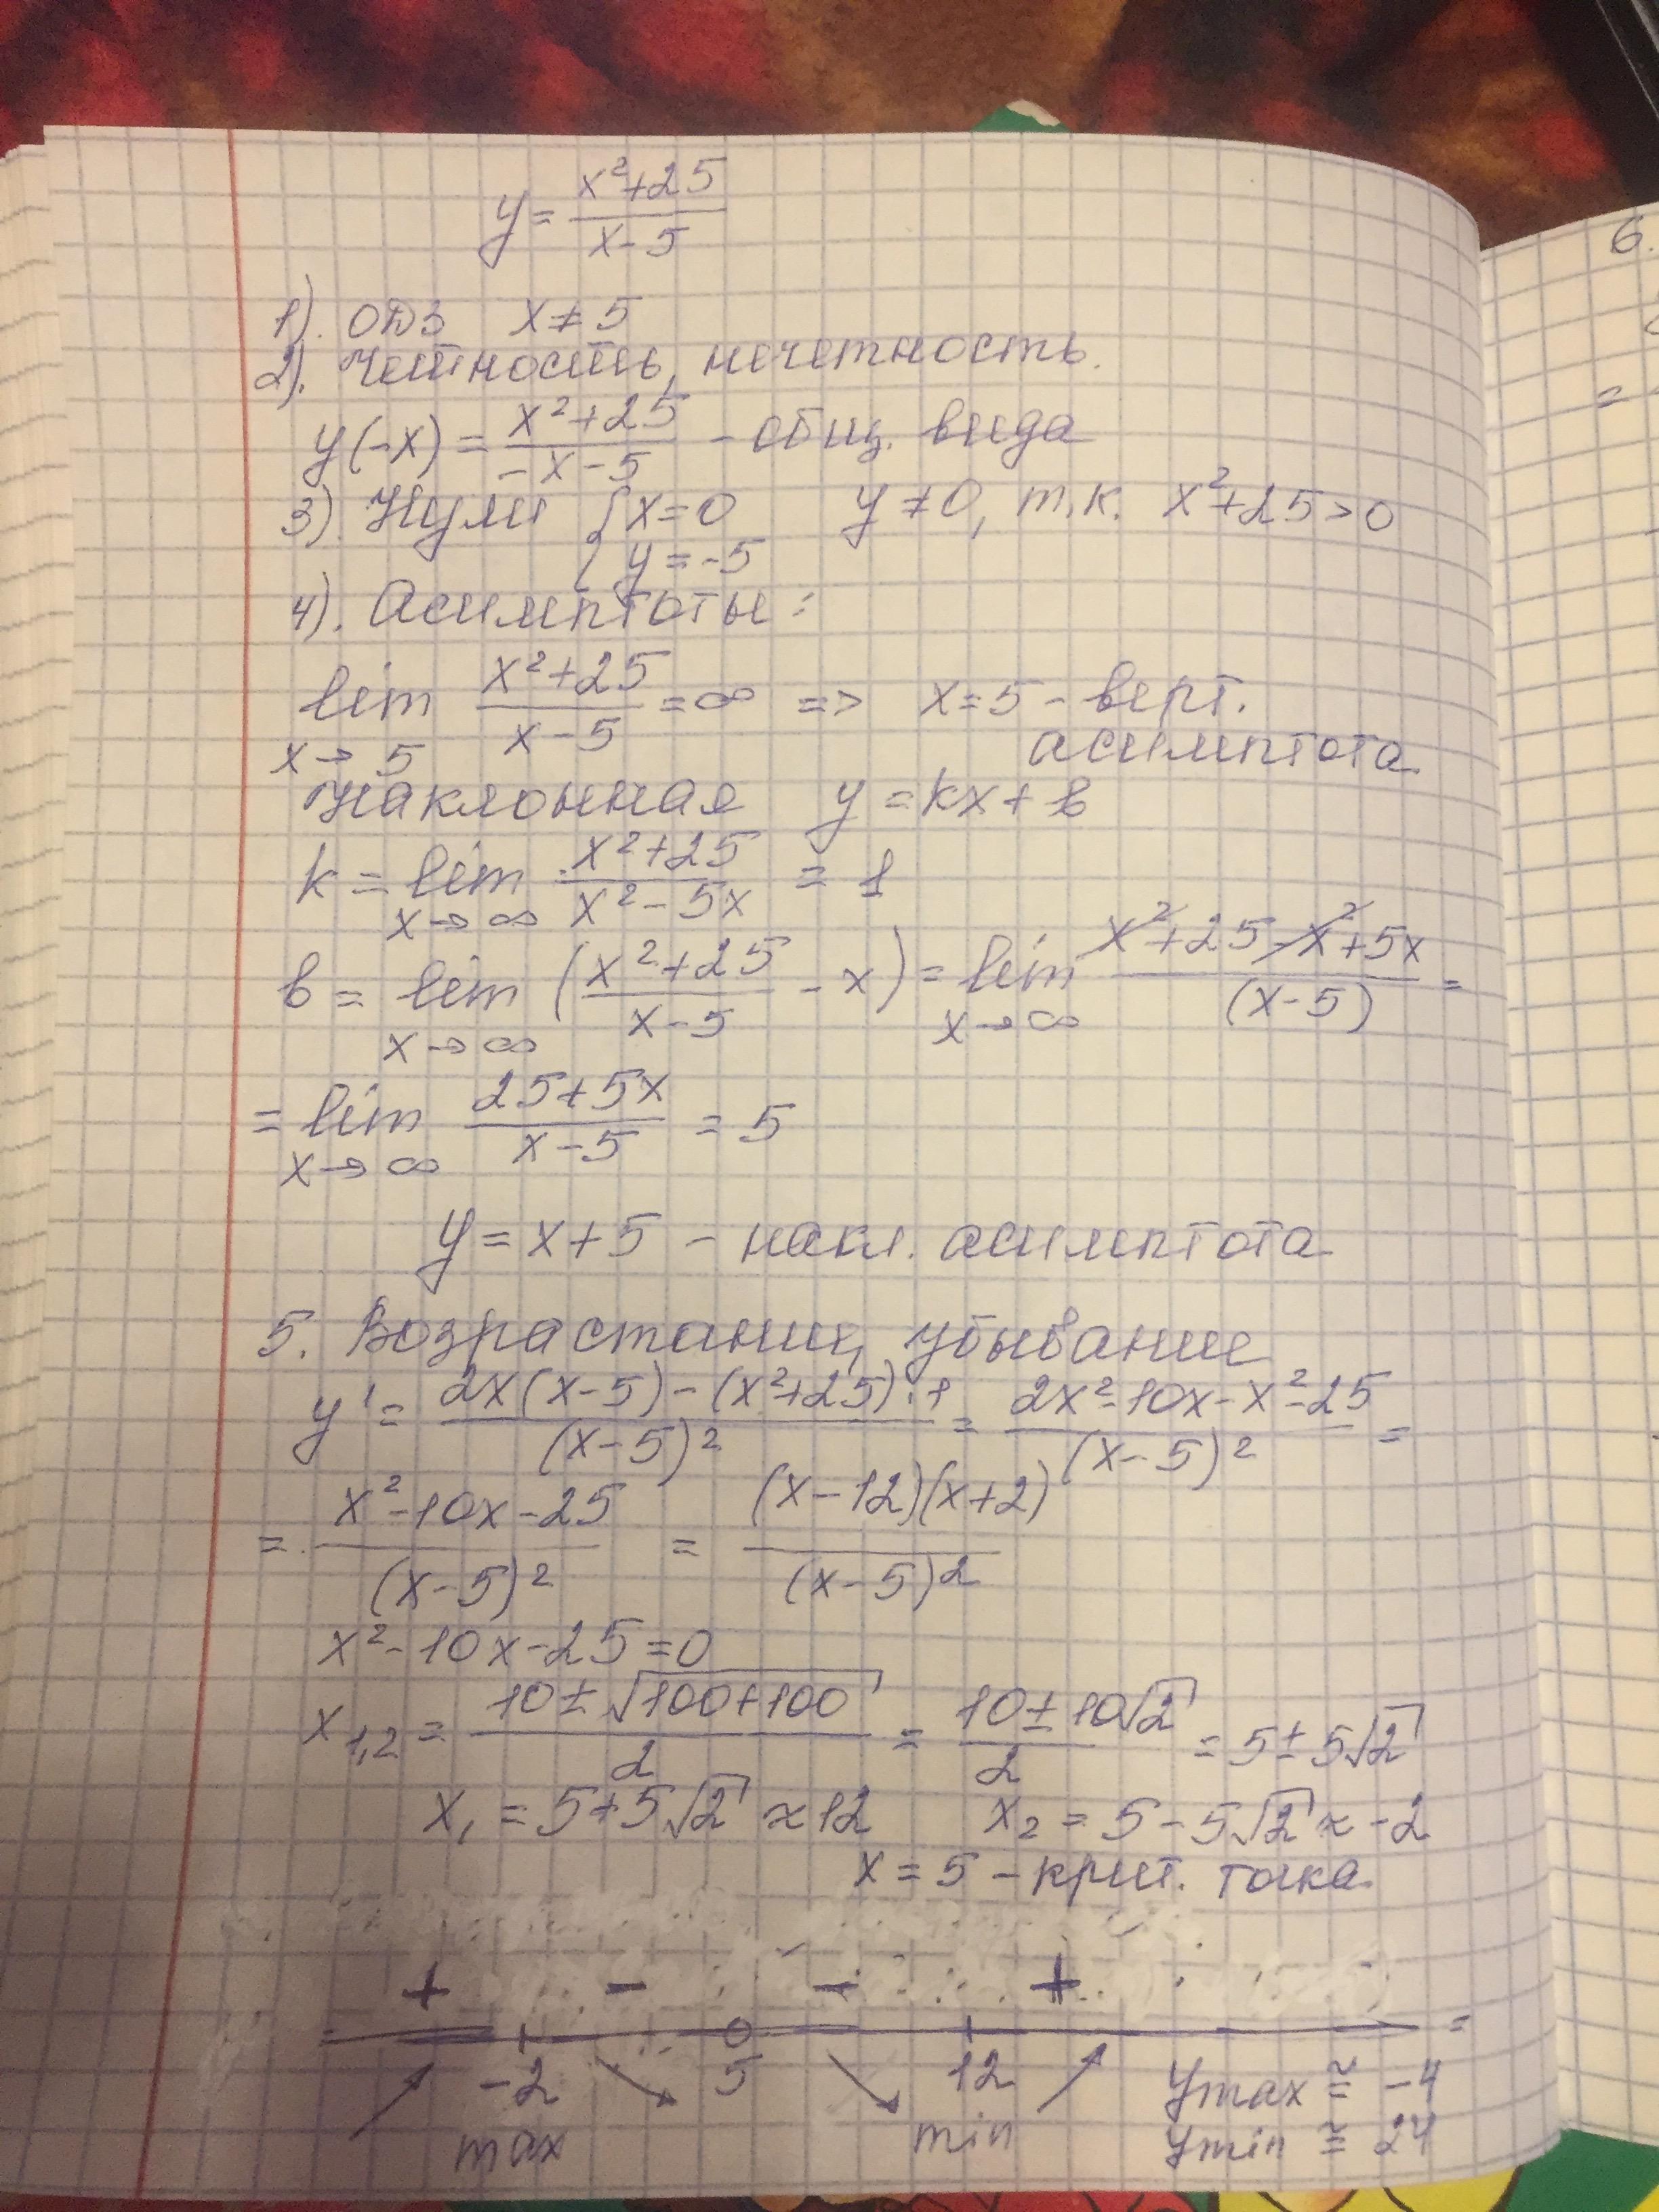 y = (x²+25)/(x-5)
1). ОДЗ x ≠ 5
2). Четность, нечетность.
y(-x) = (x²+25)/(-x-5) - общ. вида
3). Нули { x=0 y ≠ 0, т.к. x²+25>0
{ y = -5
4). Асимптоты:
lim x→5 (x²+25)/(x-5) = ∞ => x=5 - верт.
асимптота
Наклонная y = kx + b
k = lim x→∞ (x²+25)/(x²-5x) = 1
b = lim x→∞ ((x²+25)/(x-5) - x) = lim x→∞ (x²+25-x²+5x)/(x-5) =
= lim x→∞ (25+5x)/(x-5) = 5
y = x+5 - накл. асимптота
5. Возрастание, убывание
y' = (2x(x-5)-(x²+25)·1)/(x-5)² = (2x²-10x-x²-25)/(x-5)² =
= (x²-10x-25)/(x-5)² = (x-12)(x+2)/(x-5)²
x²-10x-25=0
x1,2 = (10±√(100+100))/2 = (10±10√2)/2 = 5±5√2
x₁ = 5+5√2 ≈ 12 x₂ = 5-5√2 ≈ -2
x = 5 - крит. точка
+ - - +
-2 5 12 ymax ≅ -4
max min ymin ≅ 24
6.
=